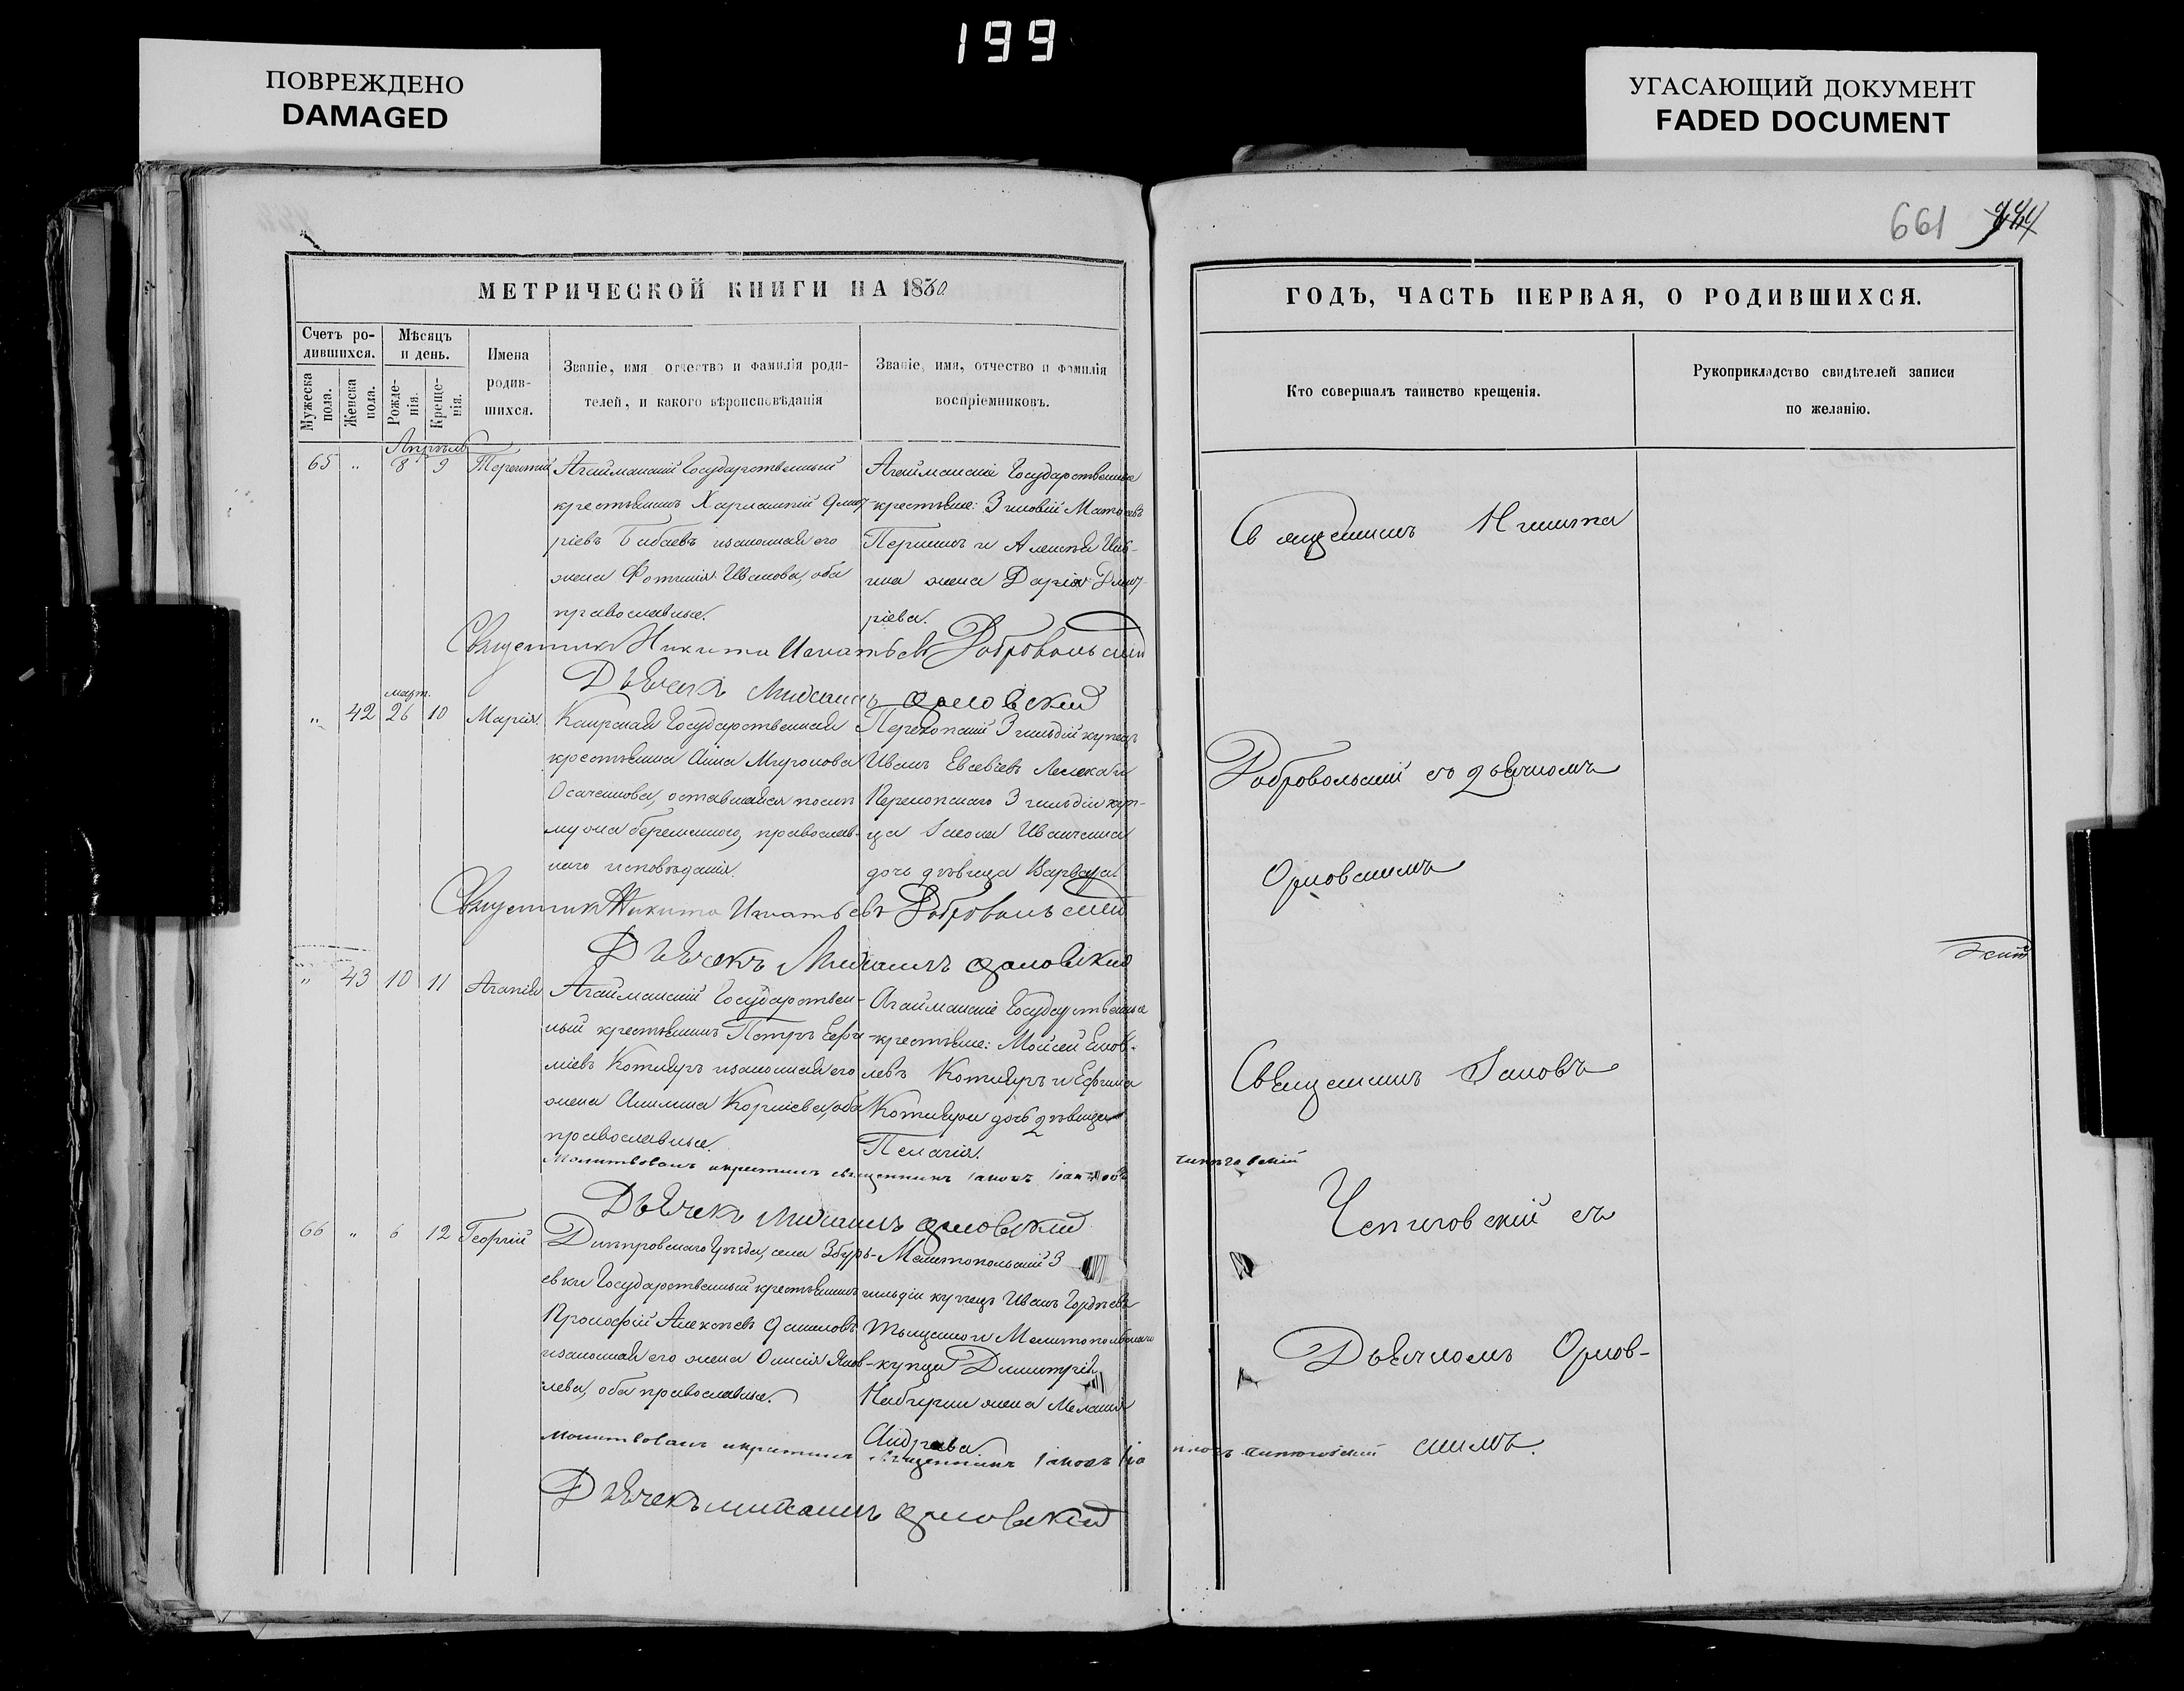 199
ПОВРЕЖДЕНО
DAMAGED
УГАСАЮЩИЙ ДОКУМЕНТ
FADED DOCUMENT
661
МЕТРИЧЕСКОЙ КНИГИ НА 1860
Счетъ ро-
дившихся.
Мужеска
пола.
Женска
пола.
Мѣсяцъ
и день.
Рожде-
нія.
Креще-
нія.
Имена
родив-
шихся.
Званіе, имя отчество и фамилія роди-
телей, и какого вѣроисповѣданія
Званіе, имя, отчество и фамилія
воспріемниковъ.
Апрѣль
65 " 8 9 Терентій
Агайманскій Государственный
крестьянинъ Харлампій Дмит-
ріевъ Бабаевъ и законная его
жена Фотинія Иванова, оба
православные.
Агайманскіе Государственные
крестьяне: Зиновій
и Алексѣя
жена Дарія Дмит-
ріева.
Священникъ Никита Игнатьевъ Добровольскій
Дьячекъ Михаилъ Орловскій
март.
" 42 26 10 Марія
Каирская Государственная
крестьянка Анна Миронова
оставшаяся послѣ
мужа беременною, православ-
наго исповѣданія.
Перекопскій 3 гильдіи купецъ
Иванъ Евсевіевъ Лелека и
Перекопскаго 3 гильдіи куп-
ца Іакова Иванченка
дочь дѣвица Варвара.
Священникъ Никита Игнатьевъ Добровольскій
Дьячекъ Михаилъ Орловскій
" 43 10 11 Агапія
Агайманскій Государствен-
ный крестьянинъ Петръ Ефи-
міевъ Котляръ и законная его
жена Акилина Корніева, оба
православные.
Агайманскіе Государственные
крестьяне: Моисей Іаков-
левъ Котляръ и Ефима
Котляра дочь дѣвица
Пелагія.
Молитвовалъ и крестилъ священникъ Іаковъ
Дьячекъ Михаилъ Орловскій
66 " 6 12 Георгій
Днѣпровскаго Уѣзда, села Збурь-
евки Государственный крестьянинъ
Прокофій Алексѣевъ
и законная его жена Яков-
лева, оба православные.
Мелитопольскій 3
гильдіи купецъ Иванъ Гордѣевъ
и Мелитопольскаго
купца Димитрія
жена Меланія
Андреева.
Молитвовалъ и крестилъ священникъ Іаковъ
Дьячекъ Михаилъ Орловскій
ГОДЪ, ЧАСТЬ ПЕРВАЯ, О РОДИВШИХСЯ.
Кто совершалъ таинство крещенія.
Рукоприкладство свидѣтелей записи
по желанію.
Священникъ Никита
Добровольскій съ дьячкомъ
Орловскимъ
Священникъ Іаковъ
съ
Дьячкомъ Орлов-
скимъ.